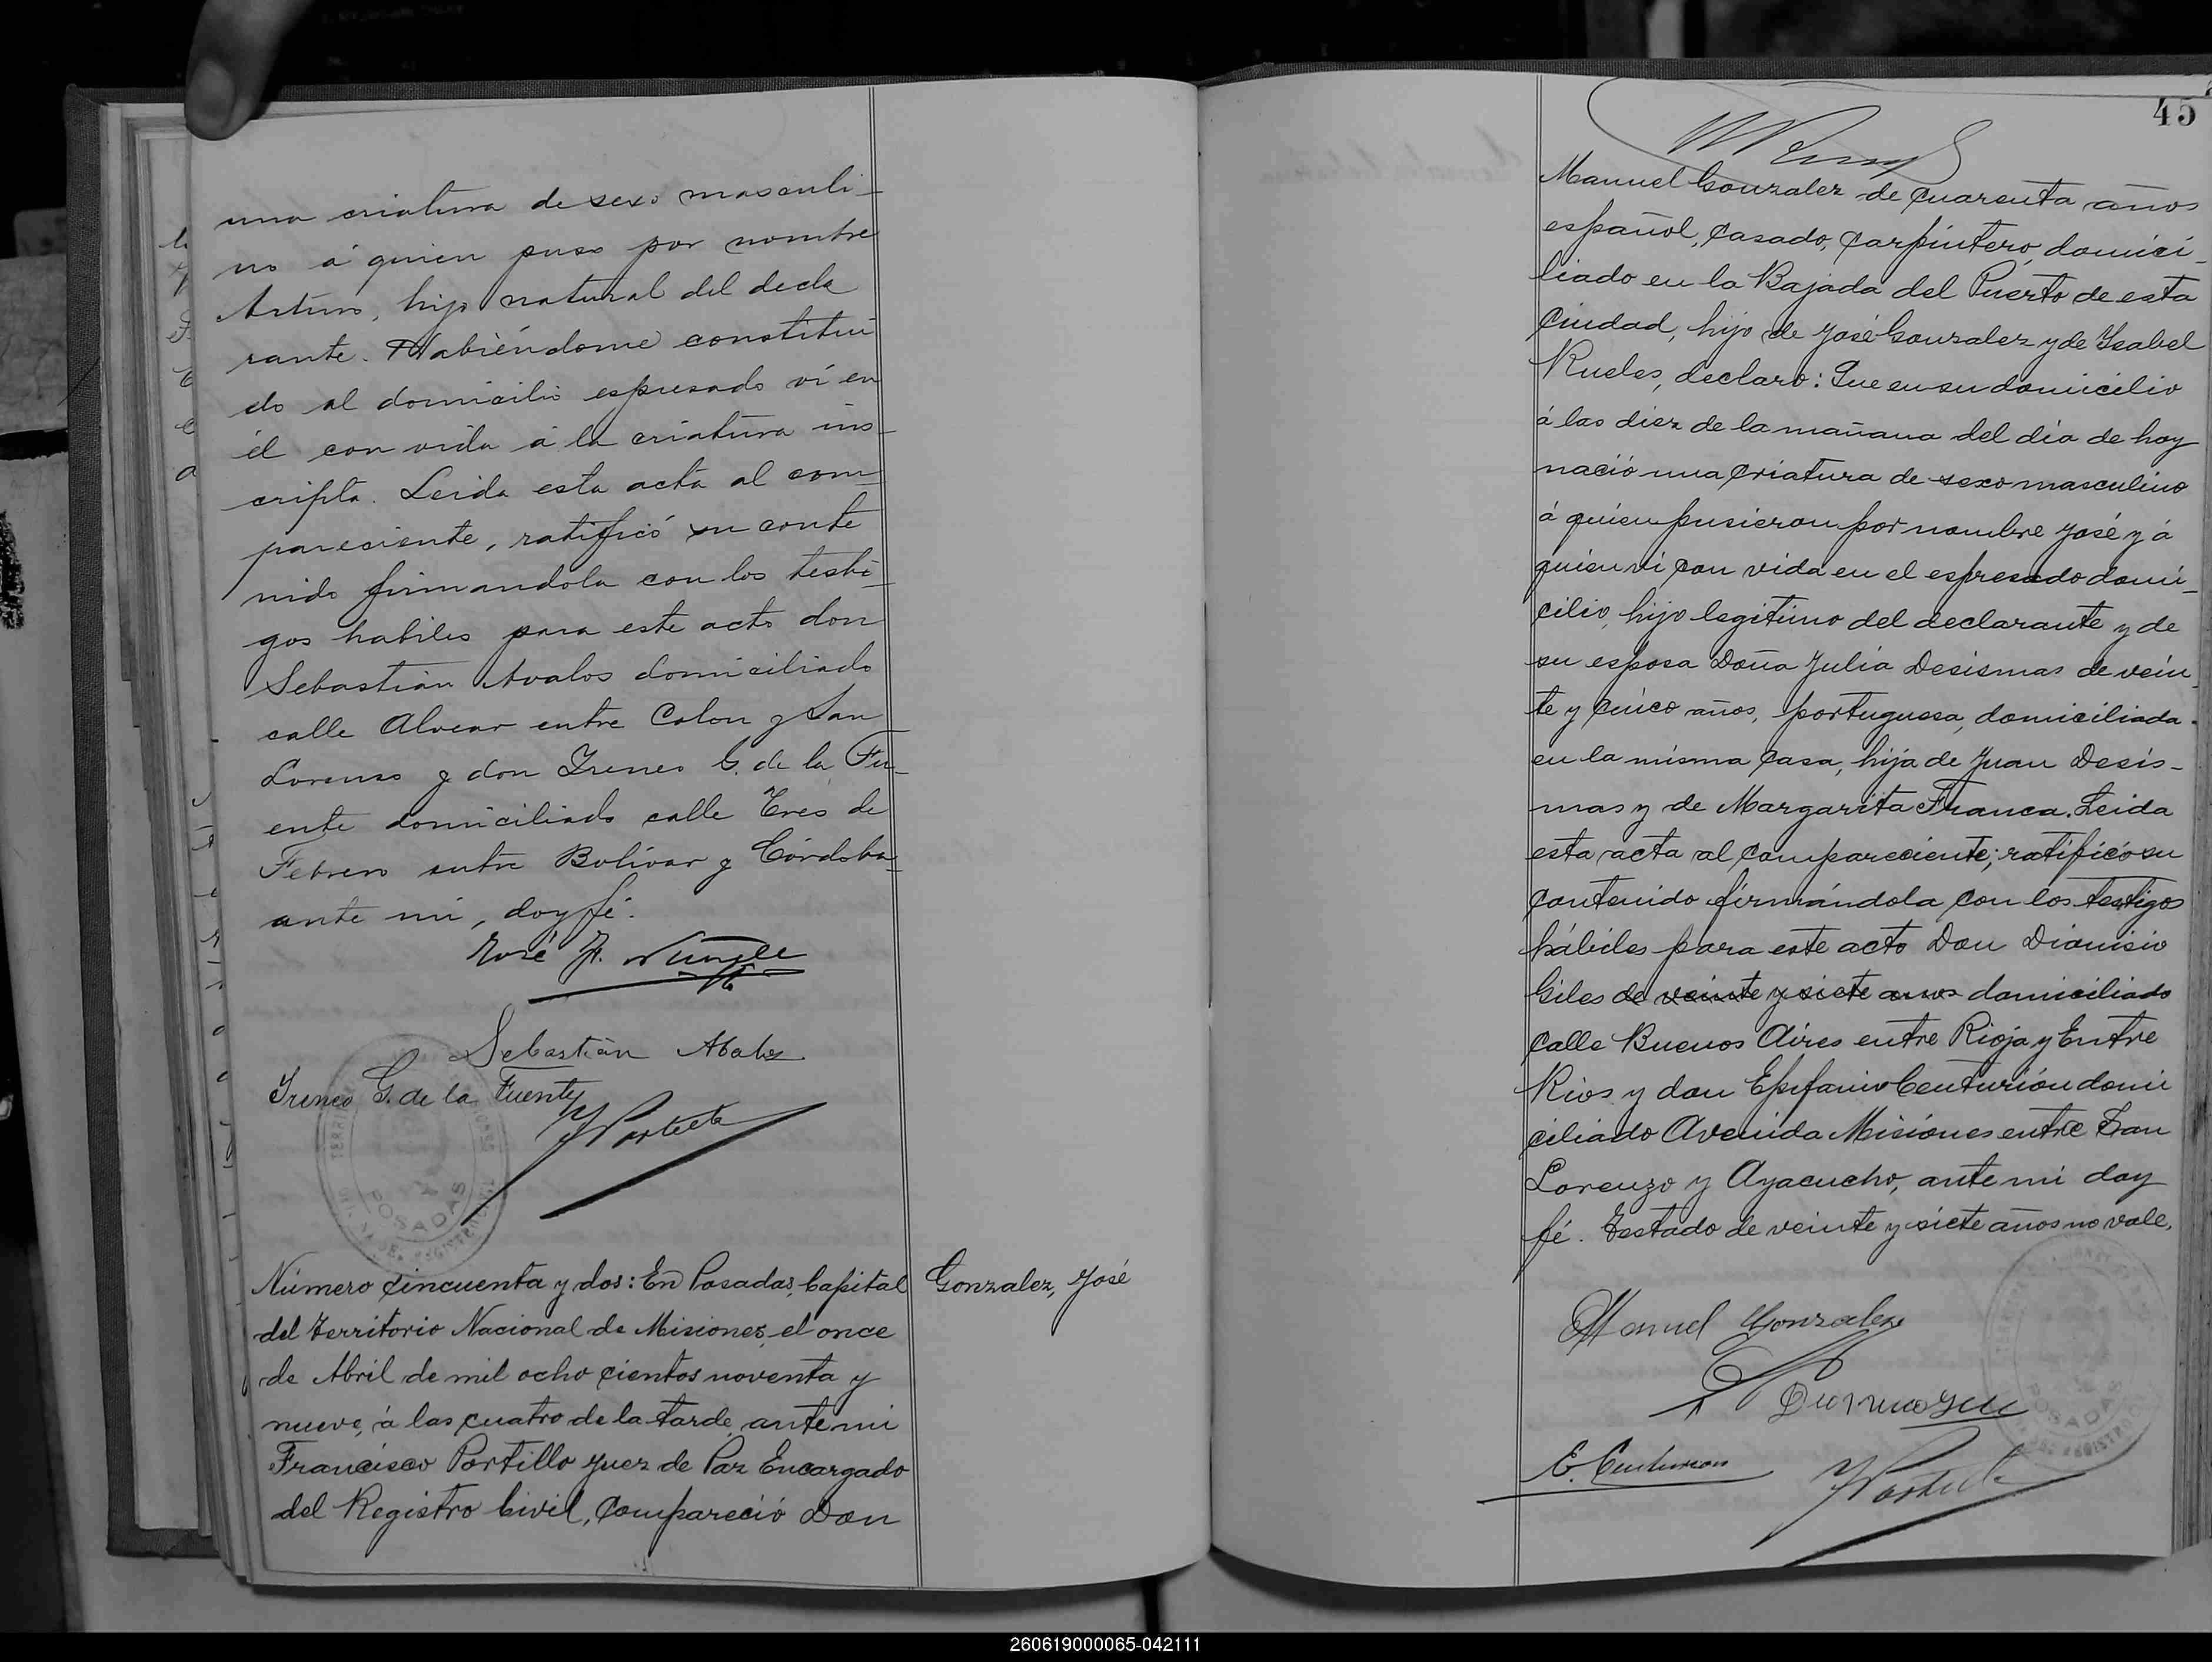 una criatura de sexo masculi-
no á quien puso por nombre
Arturo, hijo natural del decla
rante. Habiéndome constitui
do al domicilio espresado ví en
él con vida á la criatura ins-
cripta. Leida esta acta al com-
pareciente, ratificó su conte
nido firmandola con los testi-
gos habiles para este acto don
Sebastián Avalos domiciliado
calle Alvear entre Colon y San
Lorenzo y don Ireneo G. de la Fu-
ente domiciliado calle Tres de
Febrero entre Bolívar y Córdoba-
ante mi, doy fé.
José F.
Sebastián Abalos
Ireneo G. de la Fuente
F Portillo
POSADAS
Número cincuenta y dos: En Posadas, Capital
del Territorio Nacional de Misiones, el once
de Abril de mil ocho cientos noventa y
nueve, á las cuatro de la tarde, ante mi
Francisco Portillo Juez de Paz Encargado
del Registro Civil, compareció Don
Gonzalez, José
45
Manuel Gonzalez de cuarenta años
español, casado, carpintero, domici-
liado en la Bajada del Puerto de esta
ciudad, hijo de José Gonzalez y de Ysabel
Rueles, declaro: Que en su domicilio
á las diez de la mañana del día de hoy
nació una criatura de sexo masculino
á quien pusieron por nombre José y á
quien ví con vida en el espresado domi-
cilio, hijo legitimo del declarante y de
su esposa Doña Julia Desismas de vein-
te y cinco años, portuguesa, domiciliada
en la misma casa, hija de Juan Desis-
mas y de Margarita Franca. Leida
esta acta al compareciente; ratificó su
contenido firmándola con los testigos
hábiles para este acto Don Dionisio
Giles de veinte y siete años domiciliado
calle Buenos Aires entre Rioja y Entre
Rios y don Epifanio Centurión domi
ciliado Avenida Misiones entre San
Lorenzo y Ayacucho, ante mi doy
fé. Testado de veinte y siete años no vale.
Manuel Gonzalez
E. Centurion
F Portillo
POSADAS
260619000065-042111